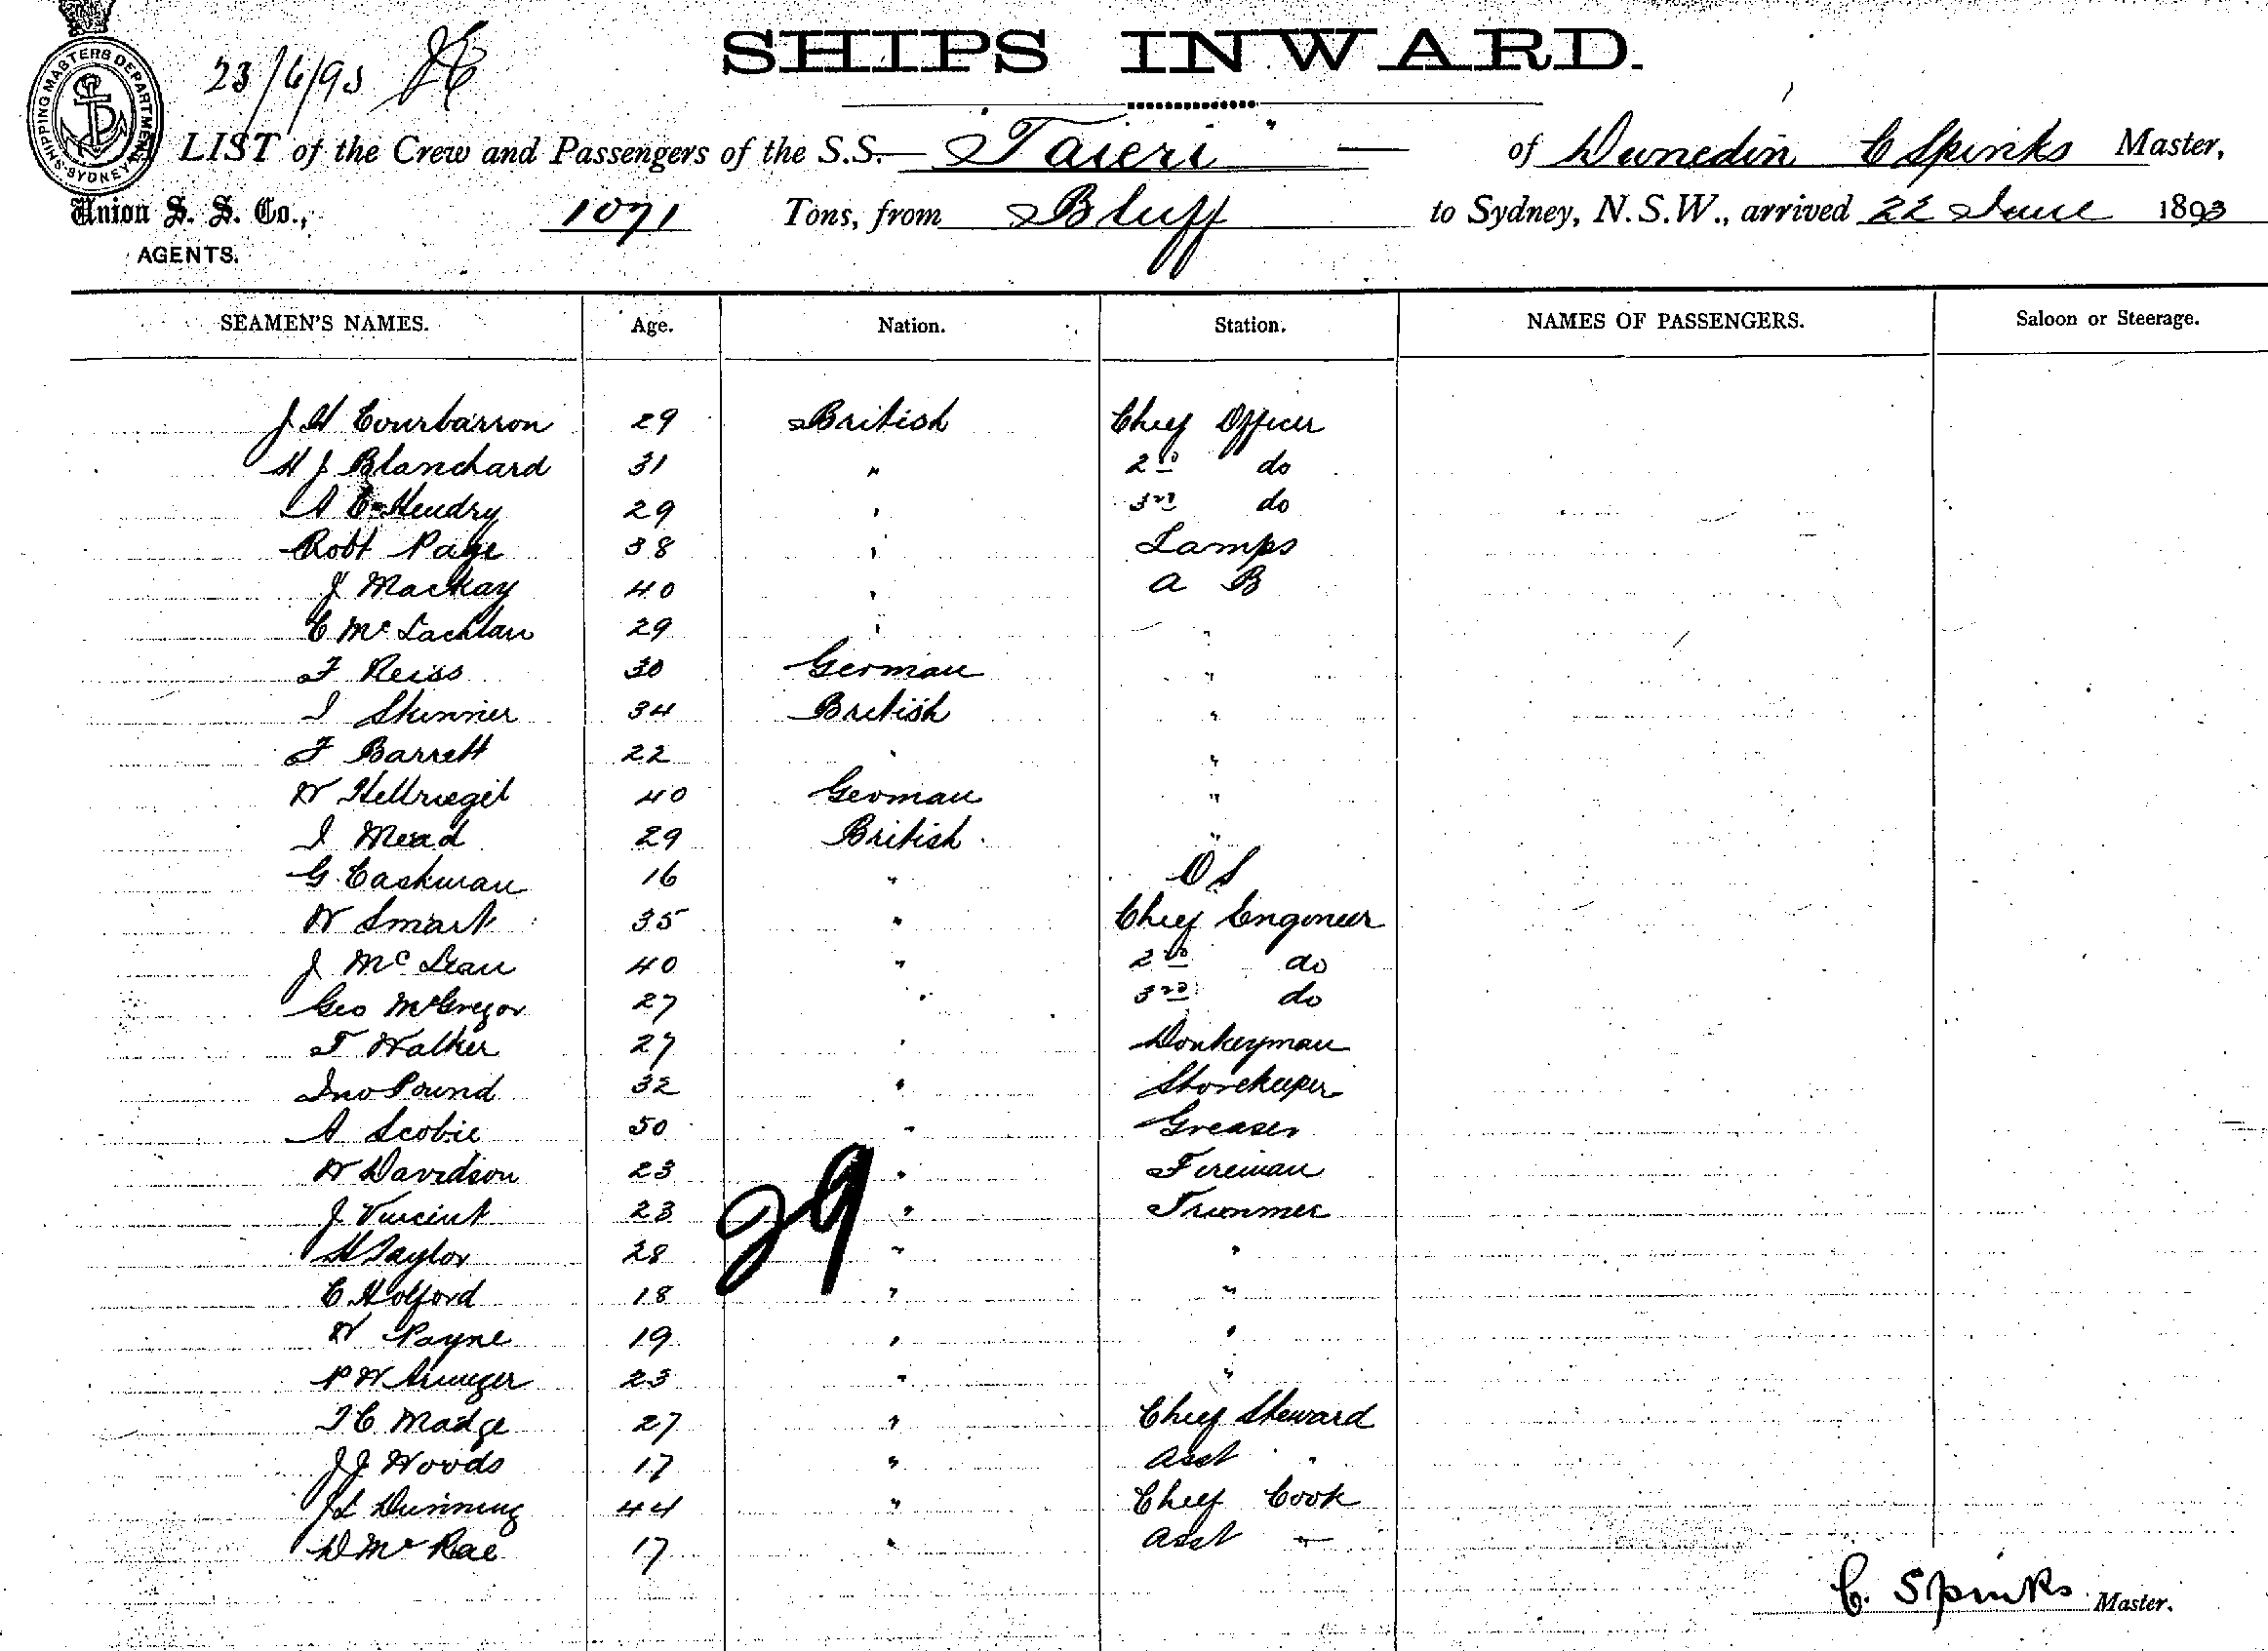 SHIPPING MASTERS DEPARTMENT SYDNEY
23/6/93
SHIPS INWARD.
LIST of the Crew and Passengers of the S.S. Taieri of Dunedin C Spinks Master,
Union S. S. Co., 1071 Tons, from Bluff to Sydney, N.S.W., arrived 22 June 1893
AGENTS.
SEAMEN'S NAMES. Age. Nation. Station. NAMES OF PASSENGERS. Saloon or Steerage.
J H Courbarron 29 British Chief Officer
H J Blanchard 31 " 2nd do
A E Hendry 29 " 3rd do
Robt Page 38 " Lamps
J Mackay 40 " A B
C McLachlan 29 " "
F Reiss 30 German "
J Skinner 34 British "
F Barrett 22 " "
W Hellriegel 40 German "
J Mead 29 British "
G Cashman 16 " O S
W Smart 35 " Chief Engineer
J McLean 40 " 2nd do
Geo McGregor 27 " 3rd do
T Walker 27 " Donkeyman
Jno Pound 32 " Storekeeper
A Scobie 50 " Greaser
W Davidson 23 " Fireman
J Vincent 23 " Trimmer
H Taylor 28 " "
C Holford 18 " "
W Payne 19 " "
P W 23 " "
T C Madge 27 " Chief Steward
J J Woods 17 " Asst "
Dunning 44 " Chief Cook
D McRae 17 " Asst "
29
C. Spinks Master.